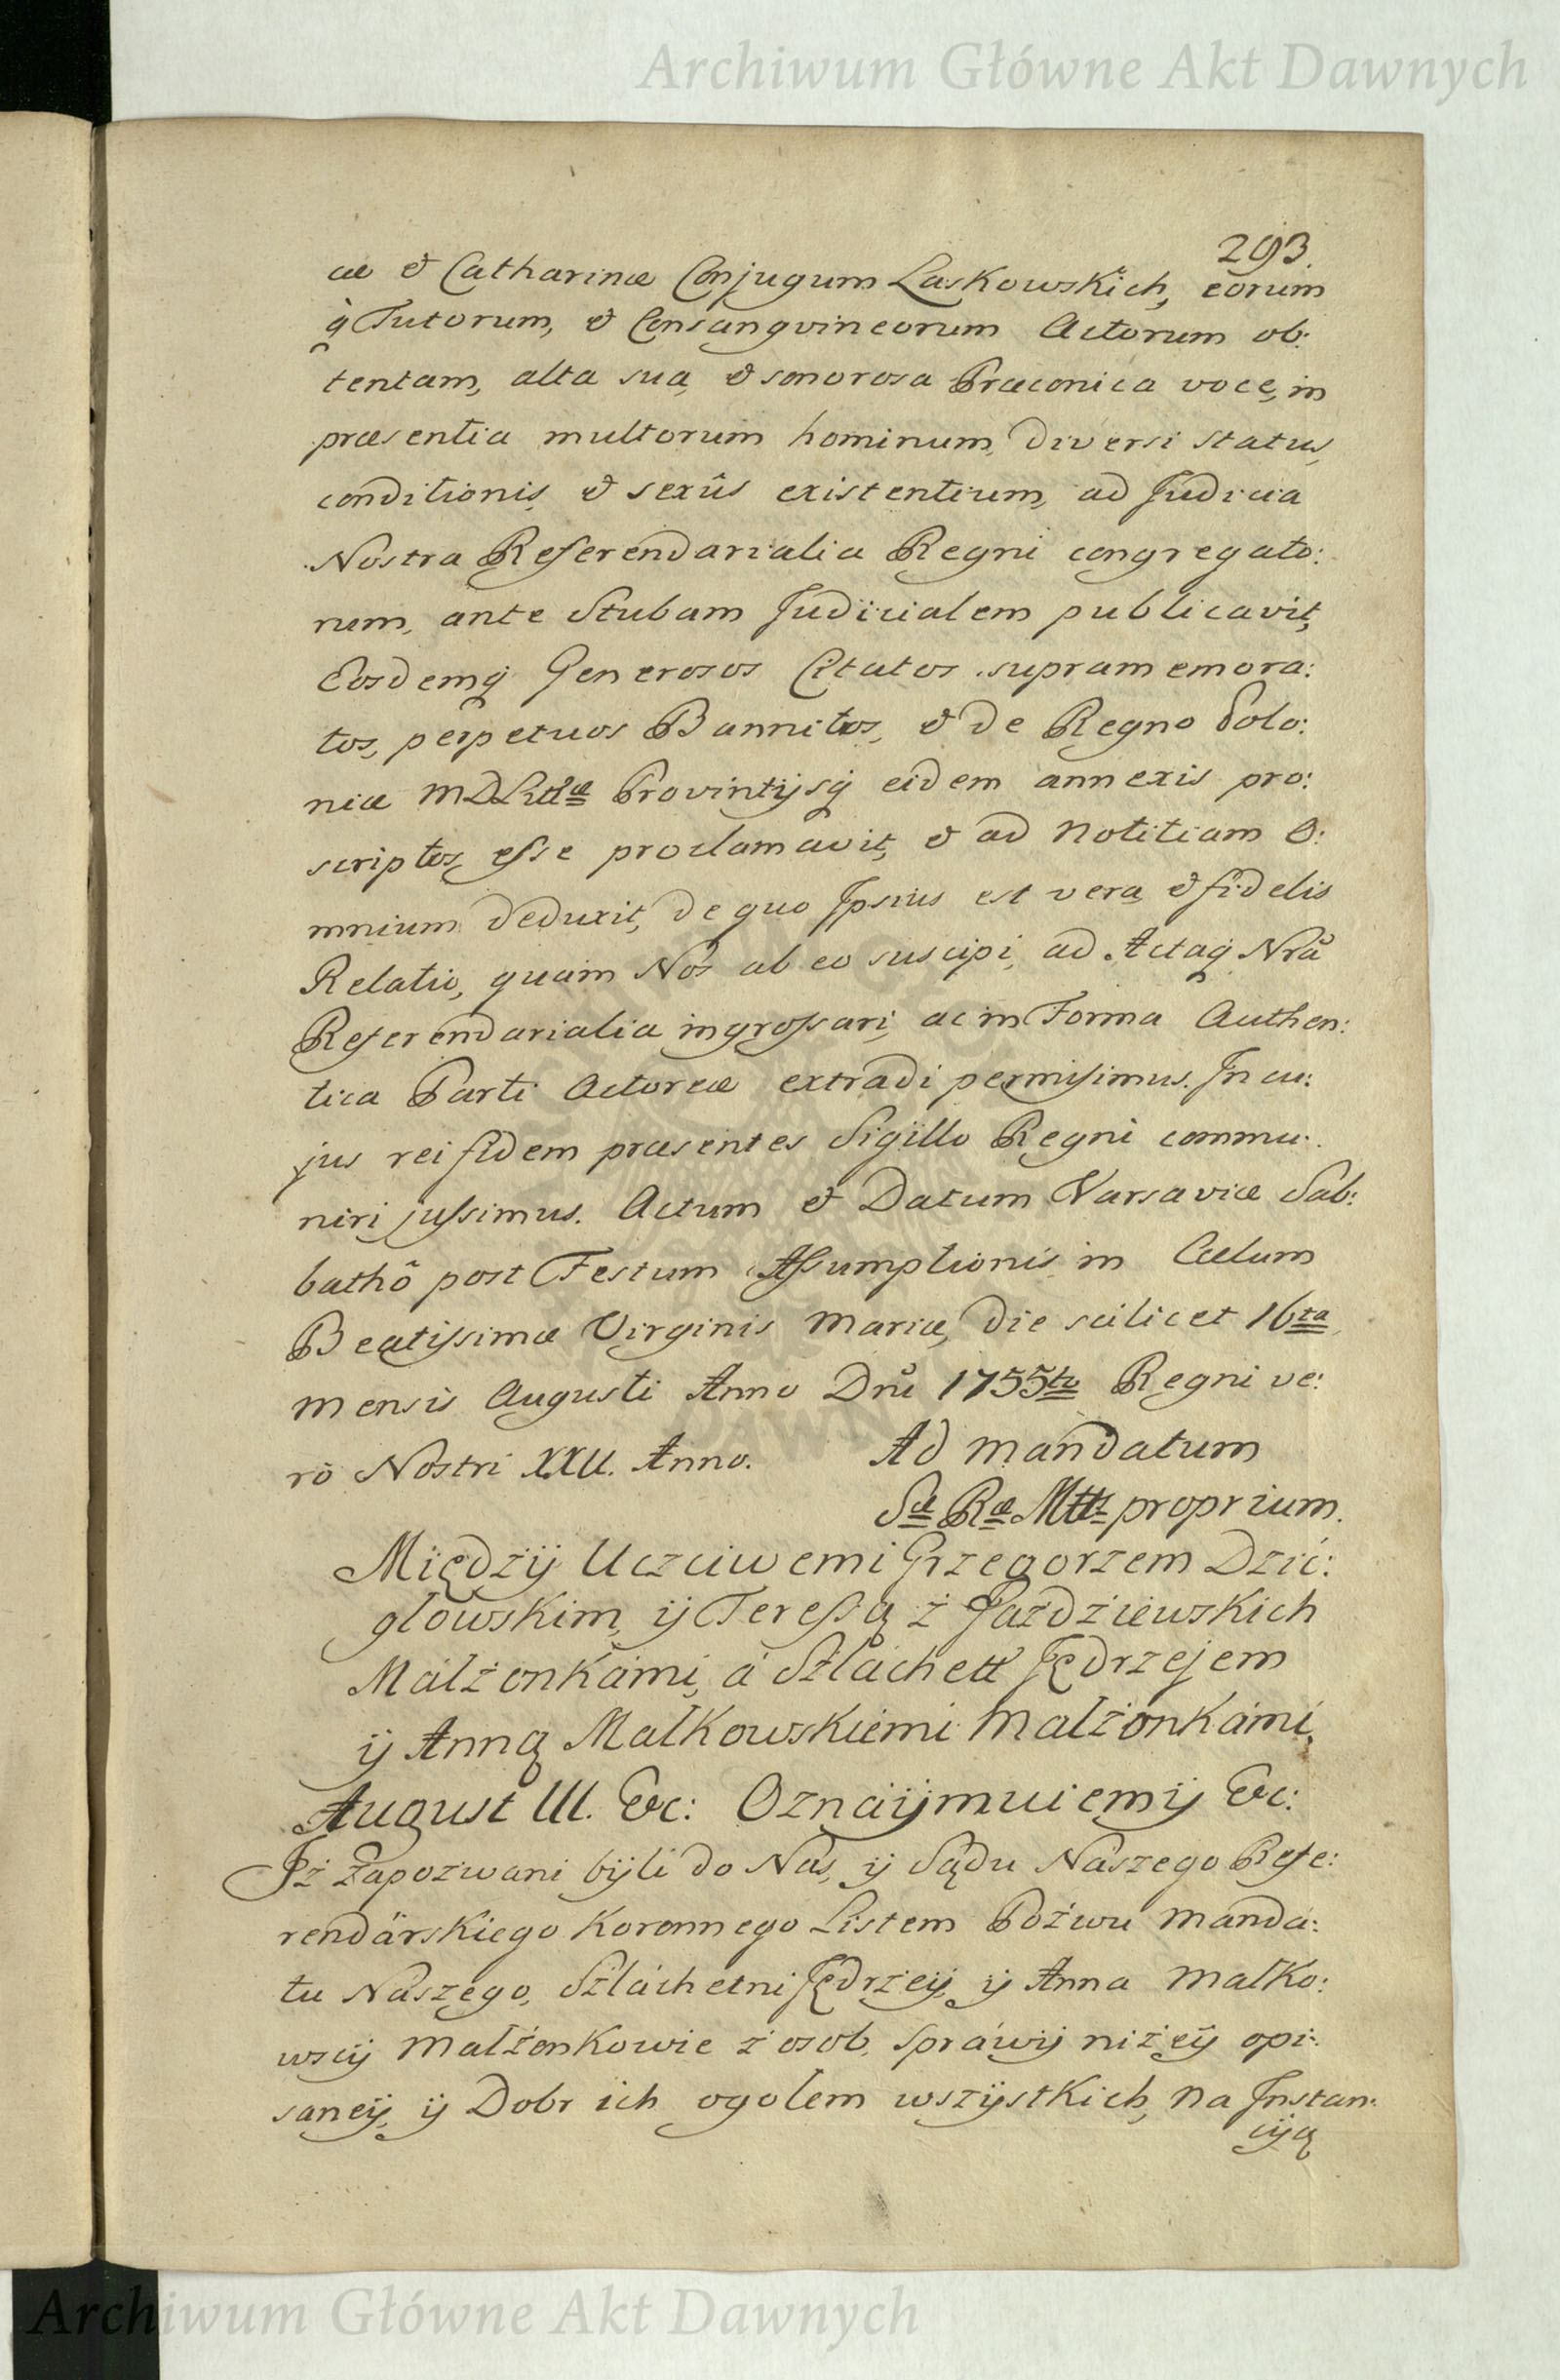 Archiwum Główne Akt Dawnych
293.
æ & Catharinæ Conjugum Laskowskich, eorum
q̀ Tutorum, & Consangvineorum Actorum ob:
tentam, alta sua, & sonorosa Præconica voce, in
præsentia multorum hominum, diversi status,
conditionis, & sexûs existentium, ad Judicia
Nostra Referendarialia Regni congregato:
rum, ante Stubam Judicialem publicavit,
Eosdemq̀ Generosos Citatos supramemora:
tos, perpetuos Bannitos, & de Regno Polo:
niæ MDLittæ Provintijsq̀ eidem annexis pro:
scriptos esse proclamavit, & ad Notitiam O:
mnium deduxit, de quo Ipsius est vera, & fidelis
Relatio, quam Nos ab eo suscipi, ad Actaq̀ Nra
Referendarialia ingrossari, ac in Forma Authen:
tica Parti Actoreæ extradi permisimus. In cu:
jus rei fidem præsentes Sigillo Regni commu:
niri jussimus. Actum & Datum Varsaviæ Sab:
bathô post Festum Assumptionis in Cælum
Beatissimæ Virginis Mariæ, die scilicet 16ta
mensis Augusti Anno Dnı̃ 1755to Regni ve:
rò Nostri XXII. Anno. Ad mandatum
Sæ Ræ Mttis proprium.
Międzÿ Uczciwemi Grzegorzem Dzić:
głowskim, ÿ Teressą z Pazdżiewskich
Małżonkámi, á Szláchett Jędrzejem
ÿ Anną Małkowskiemi Małżonkámi,
August III. &c: Oznaÿmuiemÿ &c:
Iż Zapozwani bÿli do Nas, ÿ Sądu Naszego Refe:
rendárskiego Koronnego Listem Pozwu Manda:
tu Naszego, Szláchetni Jędrzeÿ, ÿ Anna Małko:
wscÿ Małżonkowie z osob, spráwÿ niżeÿ opi:
saneÿ, ÿ Dobr ich ogolem wszÿstkich, na Instan:
cÿą
Archiwum Główne Akt Dawnych